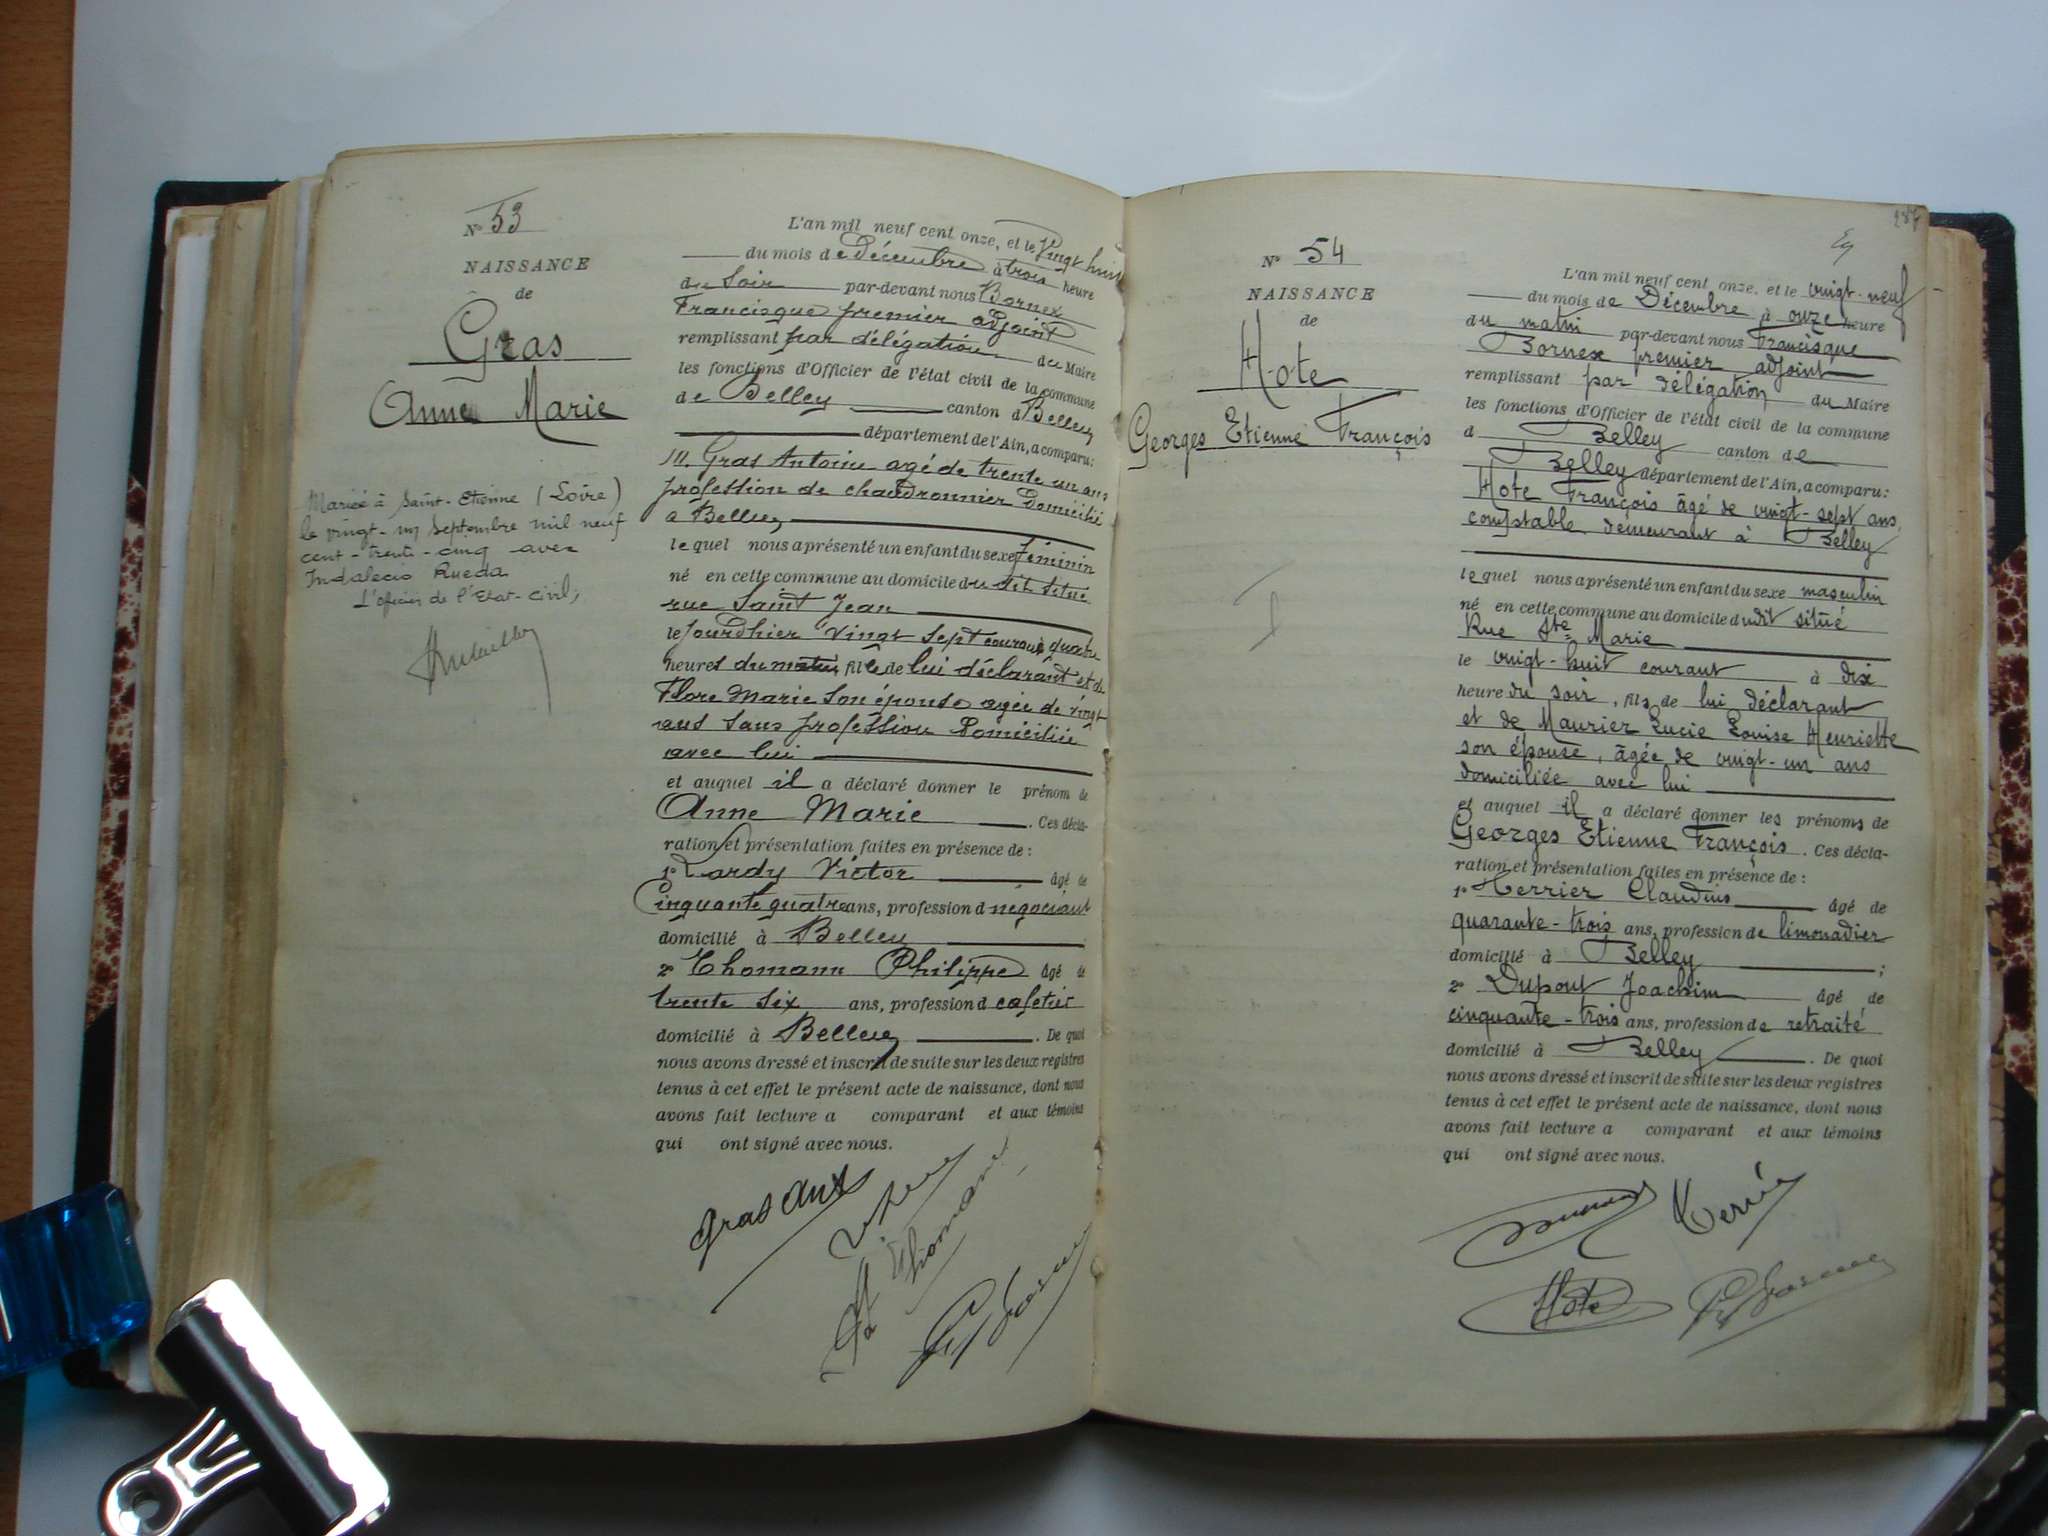 N° 53
NAISSANCE
de
Gras
Anne Marie
Mariée à Saint-Etienne (Loire)
le vingt-un septembre mil neuf
cent-trente-cinq avec
Indalecio Rueda
L'officier de l'Etat-civil,
L'an mil neuf cent onze, et le Vingt huit
du mois de Décembre à trois heure
du Soir par-devant nous Bornex
Francisque premier adjoint
remplissant par délégation du Maire
les fonctions d'Officier de l'état civil de la commune
de Belley canton d Belley
département de l'Ain, a comparu:
M. Gras Antoine agé de trente un ans
profession de chaudronnier Domicilié
a Belley
lequel nous a présenté un enfant du sexe féminin
né en cette commune au domicile du dit situé
rue Saint Jean
le jourdhier vingt sept courant à quatre
heures du matin fille de lui déclarant et de
Flore Marie son épouse agée de vingt
ans sans profession Domiciliée
avec lui
et auquel il a déclaré donner le prénom de
Anne Marie. Ces décla-
ration et présentation faites en présence de :
1° Lardy Victor âgé de
Cinquante quatre ans, profession d négociant
domicilié à Belley
2° Thomann Philippe âgé de
trente six ans, profession d cafetier
domicilié à Belley. De quoi
nous avons dressé et inscrit de suite sur les deux registres
tenus à cet effet le présent acte de naissance, dont nous
avons fait lecture a comparant et aux témoins
qui ont signé avec nous.
Gras Ant
Thomann
287
N° 54
NAISSANCE
de
Hote
Georges Etienne François
L'an mil neuf cent onze, et le vingt-neuf
du mois de Décembre à onze heure
du matin par-devant nous Francisque
Bornex premier adjoint
remplissant par délégation du Maire
les fonctions d'Officier de l'état civil de la commune
d Belley canton de
Belley département de l'Ain, a comparu:
Hote François âgé de vingt-sept ans,
comptable demeurant à Belley
lequel nous a présenté un enfant du sexe masculin
né en cette commune au domicile du dit situé
Rue Ste Marie
le vingt-huit courant à dix
heure du soir, fils de lui déclarant
et de Maurier Lucie Louise Henriette
son épouse, âgée de vingt-un ans
domiciliée avec lui
et auquel il a déclaré donner les prénoms de
Georges Etienne François. Ces décla-
ration et présentation faites en présence de :
1° Terrier Claudius âgé de
quarante-trois ans, profession de limonadier
domicilié à Belley ;
2° Dupont Joachim âgé de
cinquante-trois ans, profession de retraité
domicilié à Belley. De quoi
nous avons dressé et inscrit de suite sur les deux registres
tenus à cet effet le présent acte de naissance, dont nous
avons fait lecture a comparant et aux témoins
qui ont signé avec nous.
Hote